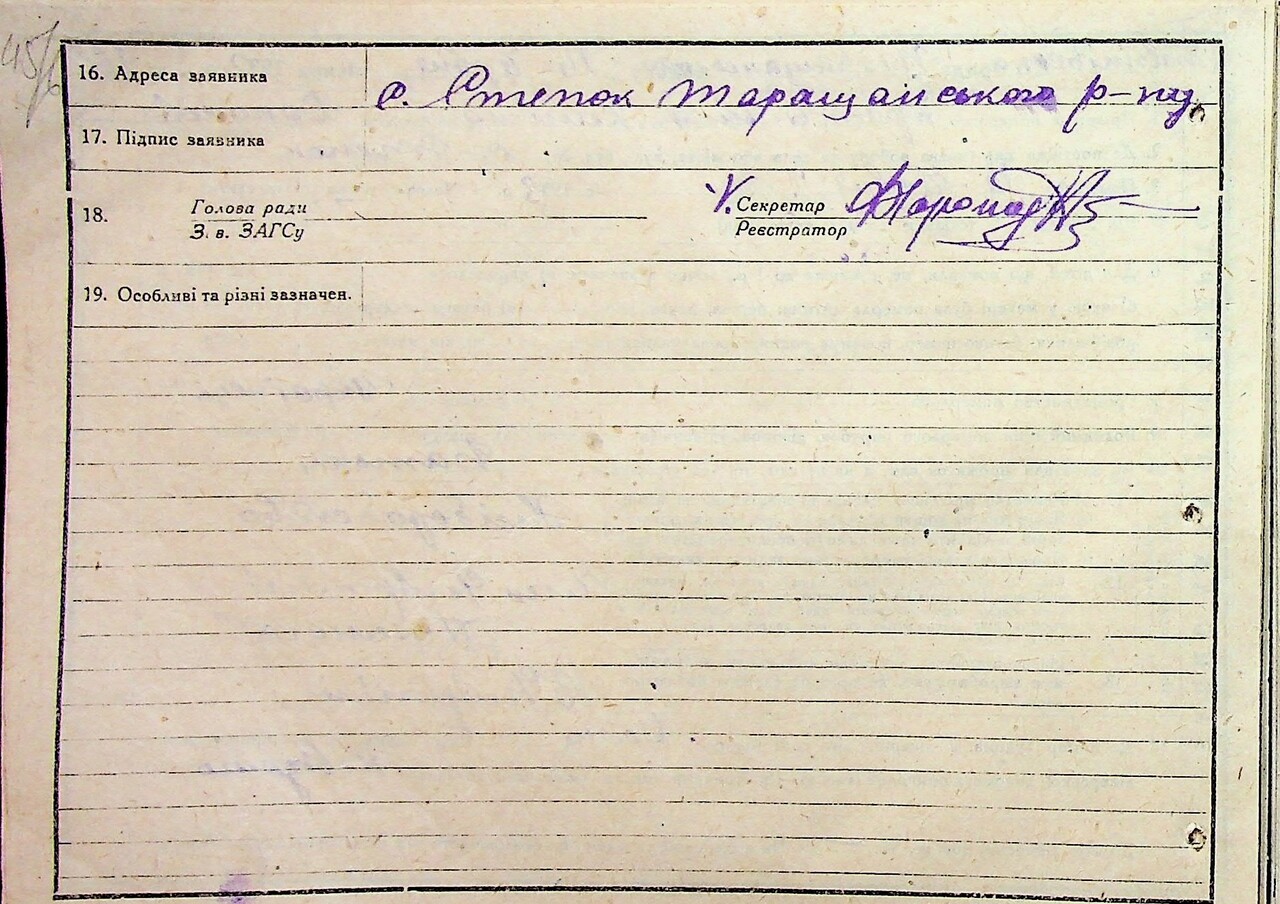 45/6
16. Адреса заявника с. Степок Таращанського р-ну
17. Підпис заявника
18. Голова ради Секретар
З. в. ЗАГСу Реєстратор
19. Особливі та різні зазначен.